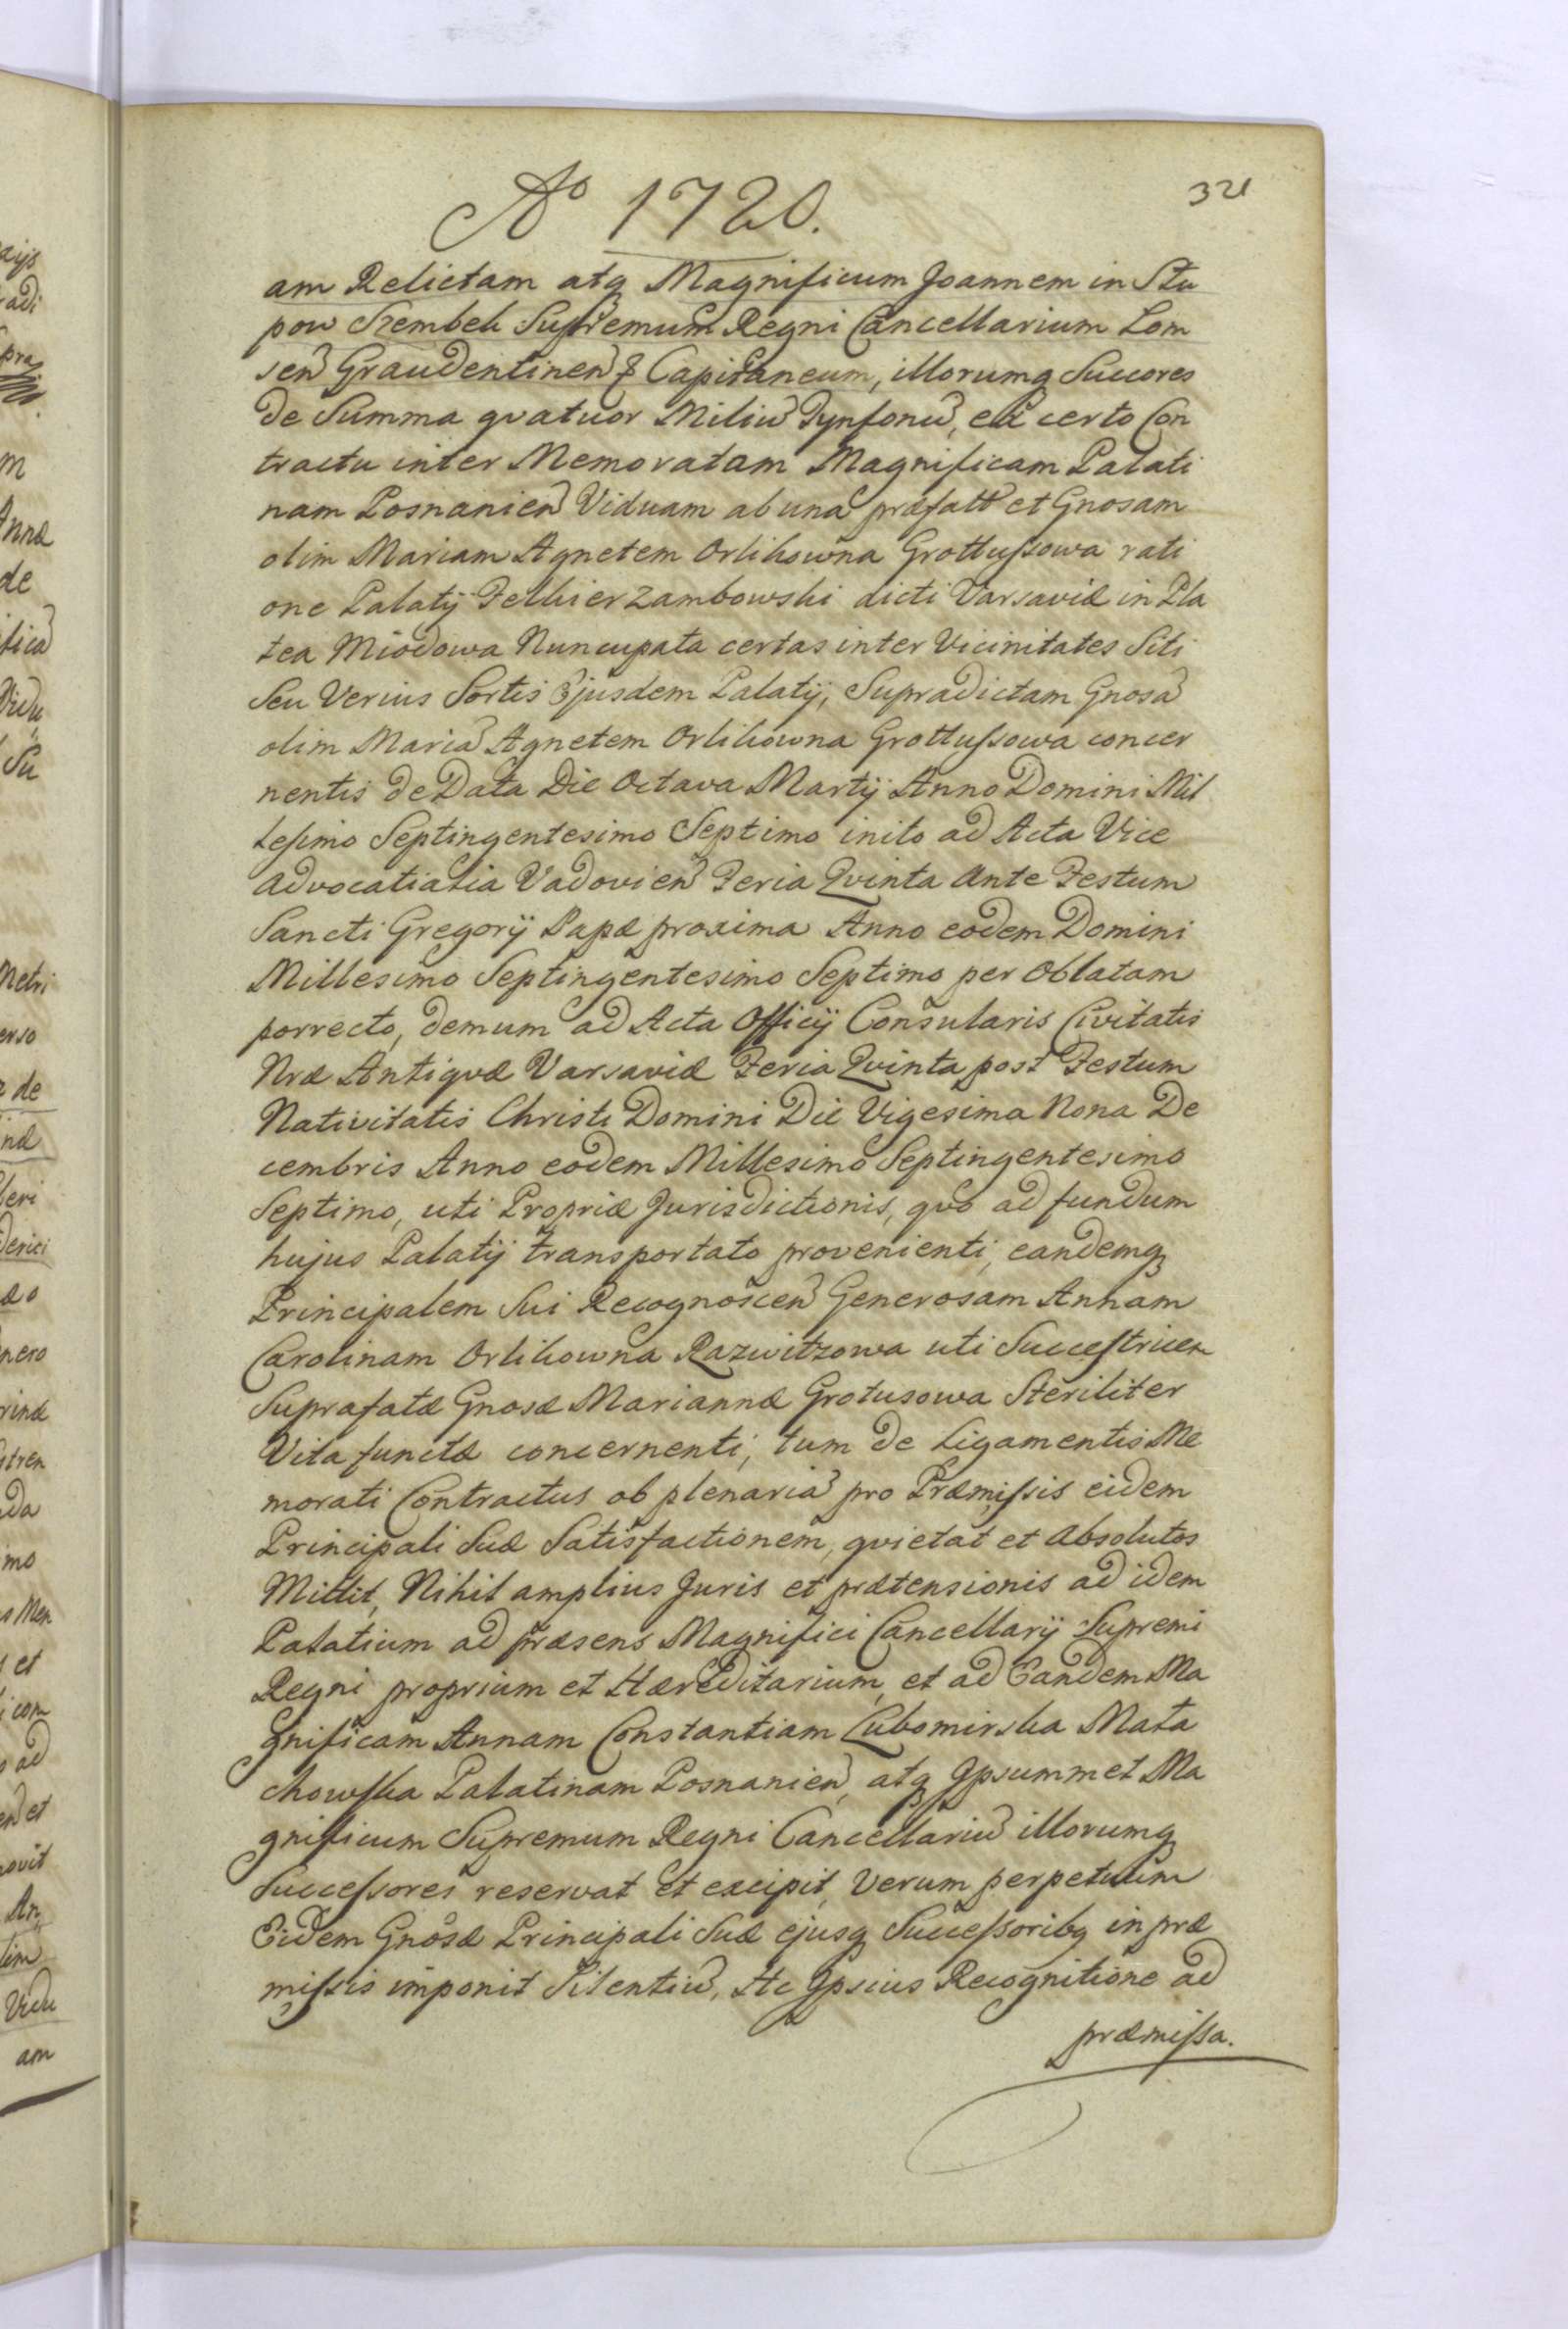 Aº 1720.
321
am Relictam atq Magnificum Joannem in Stu
pow Szembek Supremum Regni Cancellarium Lom
sen Graudentinen & Capitaneum, illorumq Succores
de Summa qvatuor Miliu Tynfonu, ex certo Con
tractu inter Memoratam Magnificam Palati
nam Posnanien Viduam ab una præfatt et Gnosam
olim Mariam Agnetem Orlikowna Grottuſsowa rati
one Palatij Felkierzambowski dicti Varsaviæ in Pla
tea Miodowa Nuncupata certas inter Vicinitates Siti
Seu Verius Sortis Ejusdem Palatij, Supradictam Gnosa
olim Maria Agnetem Orlikowna Grottuſsowa concer
nentis de Data Die Octava Martij Anno Domini Mil
leſimo Septingentesimo Septimo inito ad Acta Vice
advocatialia Vadovien Feria Qvinta Ante Festum
Sancti Gregorij Papæ proxima Anno eodem Domini
Millesimo Septingentesimo Septimo per Oblatam
porrecto, demum ad Acta Officij Consularis Civitatis
Nræ Antiqvæ Varsaviæ Feria Qvinta post Festum
Nativitatis Christi Domini Die Vigesima Nona De
cembris Anno eodem Millesimo Septingentesimo
Septimo, uti Propriæ Jurisdictionis, qvo ad fundum
hujus Palatij transportato provenienti, eandemq
Principalem Sui Recognoscen Generosam Annam
Carolinam Orlikowna Razwitzowa uti Succeſtricem
Suprafatæ Gnosæ Mariannæ Grotusowa Steriliter
Vita functæ concernenti, tum de Ligamentis Me
morati Contractus ob plenaria pro Præmiſsis eidem
Principali Suæ Satisfactionem, qvietat et Absolutos
Mittit, Nihil amplius Juris et prætensionis ad idem
Palatium ad præsens Magnifici Cancellarij Supremi
Regni proprium et Hæreditarium, et ad Eandem Ma
gnificam Annam Constantiam Lubomirska Mała
chowſka Palatinam Posnanien, atq Ipsummet Ma
gnificum Supremum Regni Cancellariu illorumq
Succeſsores reservat et excipit, Verum perpetuum
Eidem Gnosæ Principali Suæ ejusq Succeſsoribq in præ
miſsis imponit Silentiu, Hc Ipsius Recognitione ad
præmiſsa.